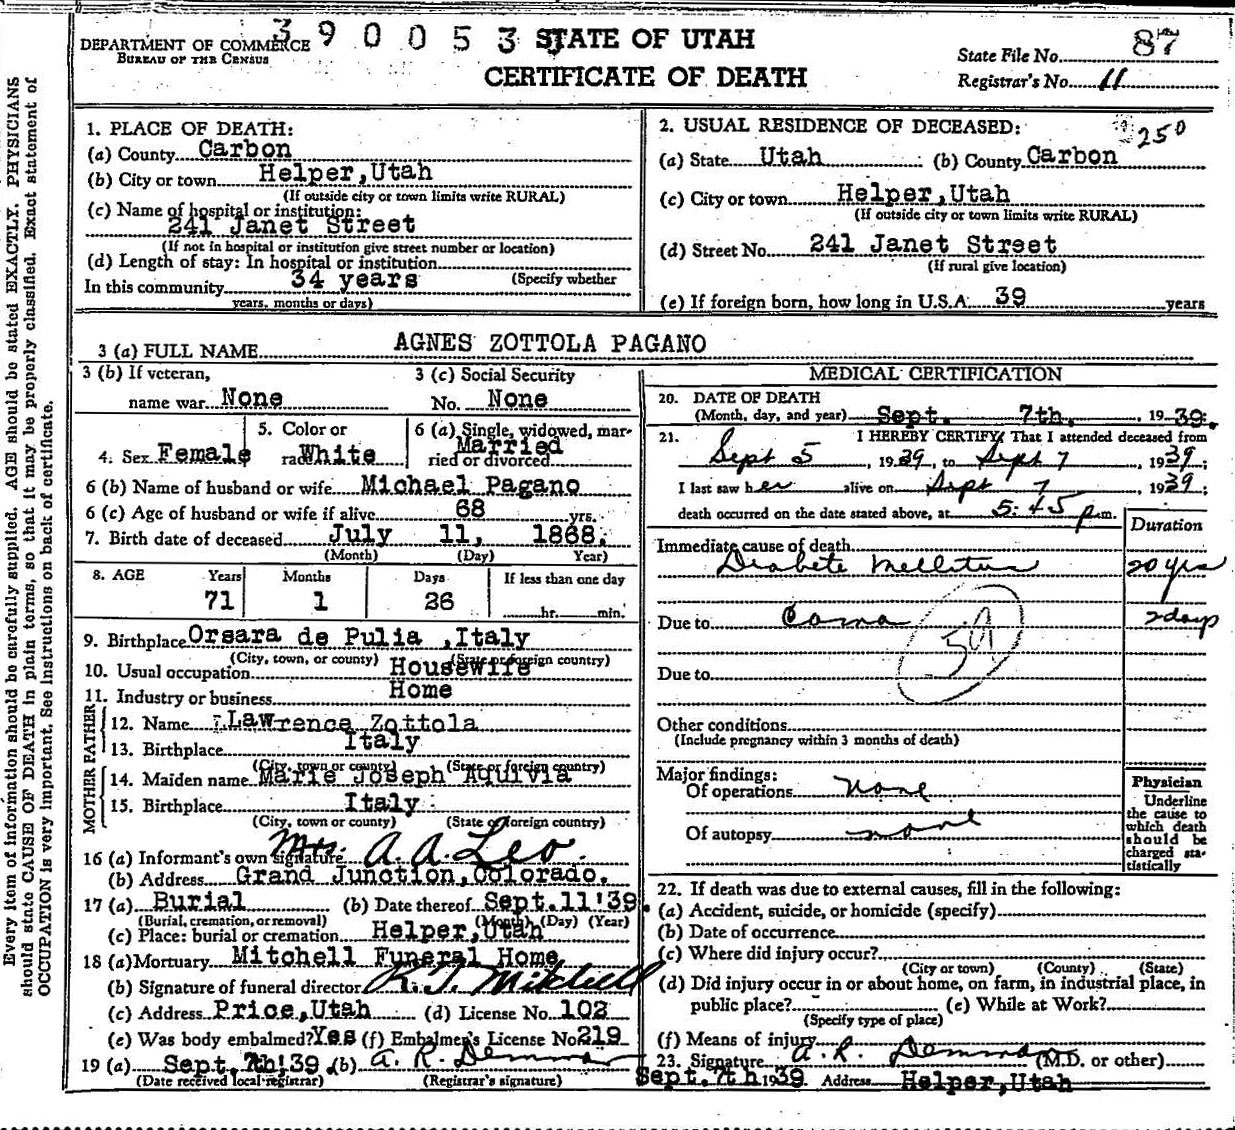 390053
DEPARTMENT OF COMMERCE
BUREAU OF THE CENSUS
STATE OF UTAH
CERTIFICATE OF DEATH
State File No. 87
Registrar's No. 11
1. PLACE OF DEATH:
(a) County Carbon
(b) City or town Helper, Utah
(If outside city or town limits write RURAL)
(c) Name of hospital or institution:
241 Janet Street
(If not in hospital or institution give street number or location)
(d) Length of stay: In hospital or institution
(Specify whether
In this community 34 years
years, months or days)
2. USUAL RESIDENCE OF DECEASED:
250
(a) State Utah (b) County Carbon
(c) City or town Helper, Utah
(If outside city or town limits write RURAL)
(d) Street No. 241 Janet Street
(If rural give location)
(e) If foreign born, how long in U.S.A. 39 years
3 (a) FULL NAME AGNES ZOTTOLA PAGANO
3 (b) If veteran,
name war None
3 (c) Social Security
No. None
4. Sex Female
5. Color or
race White
6 (a) Single, widowed, mar-
ried or divorced Married
6 (b) Name of husband or wife Michael Pagano
6 (c) Age of husband or wife if alive 68 yrs.
7. Birth date of deceased July 11, 1868.
(Month) (Day) Year)
8. AGE Years Months Days If less than one day
71 1 26 hr. min.
9. Birthplace Orsara de Pulia ,Italy
(City, town, or county) (State or foreign country)
10. Usual occupation Housewife
11. Industry or business Home
FATHER
12. Name Lawrence Zottola
13. Birthplace Italy
(City, town or county) (State or foreign country)
MOTHER
14. Maiden name Marie Joseph Aquivia
15. Birthplace Italy
(City, town or county) (State or foreign country)
16 (a) Informant's own signature Mrs. A. A. Leo.
(b) Address Grand Junction, Colorado.
17 (a) Burial (b) Date thereof Sept. 11'39.
(Burial, cremation, or removal) (Month) (Day) (Year)
(c) Place: burial or cremation Helper, Utah
18 (a) Mortuary Mitchell Funeral Home
(b) Signature of funeral director R. T. Mitchell
(c) Address Price, Utah (d) License No. 102
(e) Was body embalmed? Yes (f) Embalmer's License No. 219
19 (a) Sept. 7th '39. (b) A. R. Demman
(Date received local registrar) (Registrar's signature)
MEDICAL CERTIFICATION
20. DATE OF DEATH
(Month, day, and year) Sept. 7th, 1939.
21. I HEREBY CERTIFY, That I attended deceased from
Sept 5, 1939, to Sept 7, 1939;
I last saw her alive on Sept 7, 1939;
death occurred on the date stated above, at 5:45 p.m.
Duration
Immediate cause of death
Diabete Mellitus 20 yrs
Due to Coma 2 days
59
Due to
Other conditions
(Include pregnancy within 3 months of death)
Major findings:
Of operations None
Of autopsy none
Physician
Underline
the cause to
which death
should be
charged sta-
tistically
22. If death was due to external causes, fill in the following:
(a) Accident, suicide, or homicide (specify)
(b) Date of occurrence
(c) Where did injury occur?
(City or town) (County) (State)
(d) Did injury occur in or about home, on farm, in industrial place, in
public place? (e) While at Work?
(Specify type of place)
(f) Means of injury
23. Signature A. R. Demman (M.D. or other)
Sept. 7th 1939 Address Helper, Utah
Every item of information should be carefully supplied. AGE should be stated EXACTLY. PHYSICIANS
should state CAUSE OF DEATH in plain terms, so that it may be properly classified. Exact statement of
OCCUPATION is very important. See instructions on back of certificate.